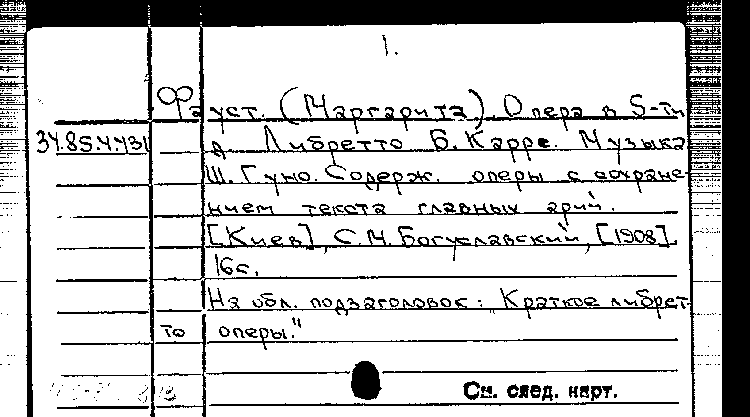 1.
Фауст. (Маргарита). Опера в 5-ти
34.85.4.431 д. Либретто Б. Карре. Музыка
Ш. Гуно. Содерж. оперы с сохране-
нием текста главных арий.
[Киев], С.М. Богуславский, [1908].
16 с.
На обл. подзаголовок: "Краткое либрет-
то оперы."
См. след. карт.